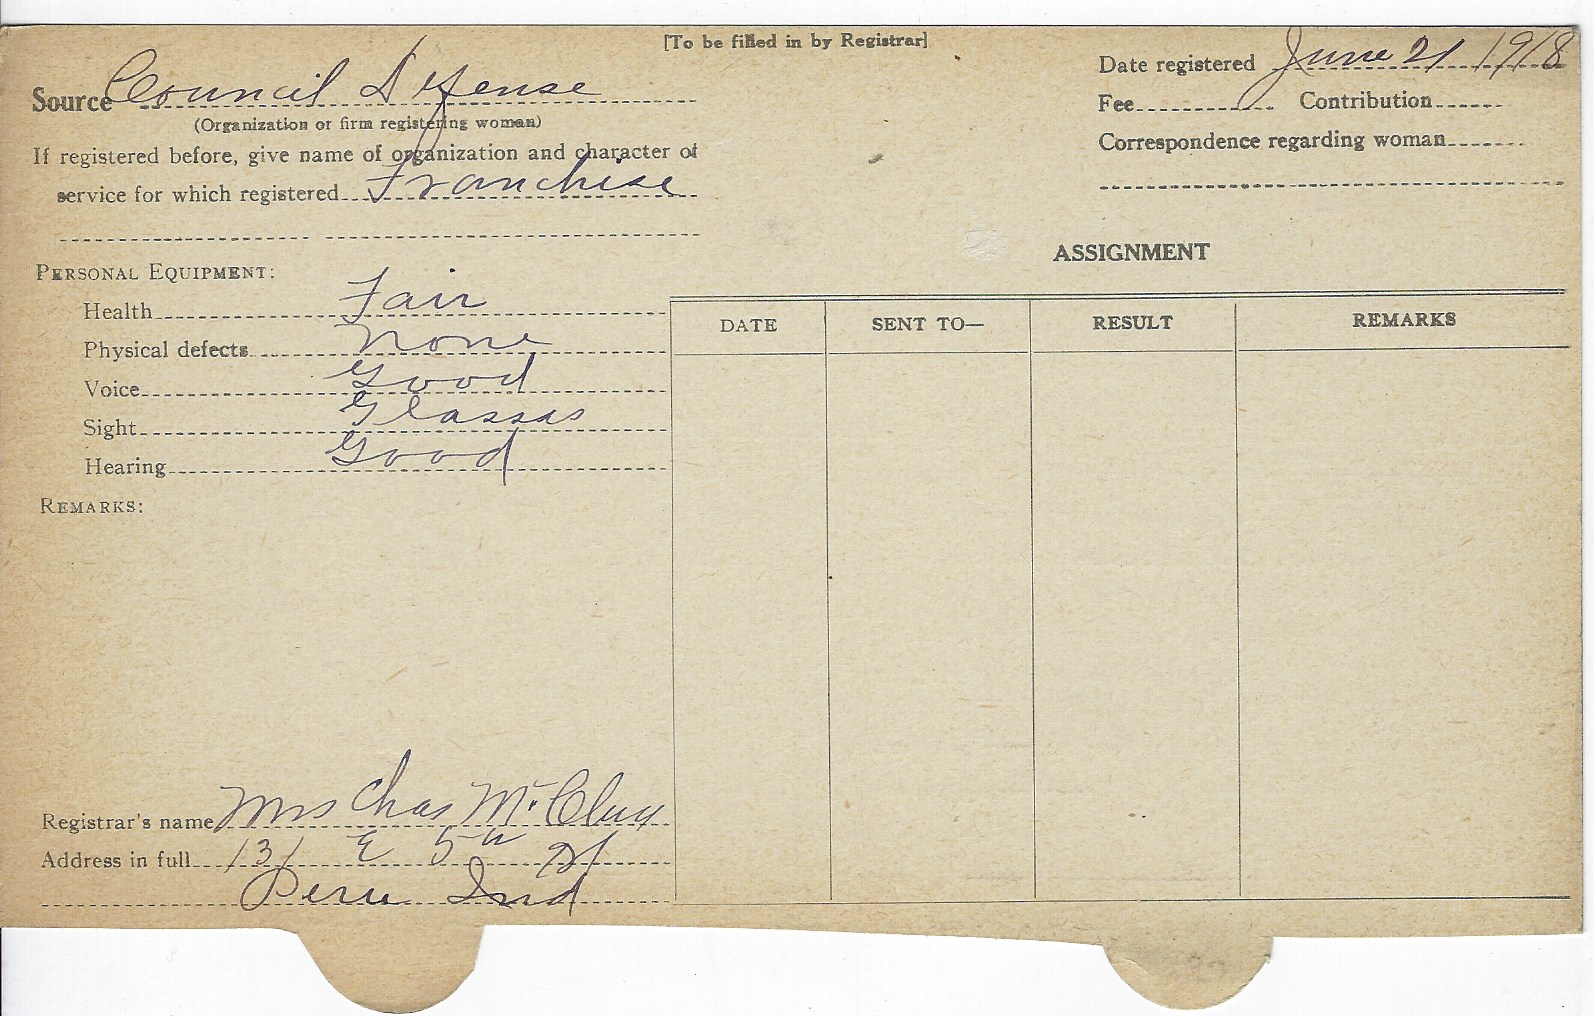 [To be filled in by Registrar]
Source Council Defense
(Organization or firm registering woman)
If registered before, give name of organization and character of
service for which registered Franchise
Date registered June 21 1918
Fee Contribution
Correspondence regarding woman
PERSONAL EQUIPMENT:
Health Fair
Physical defects None
Voice Good
Sight Glasses
Hearing Good
REMARKS:
ASSIGNMENT
DATE SENT TO— RESULT REMARKS
Registrar's name Mrs Chas Mc
Address in full 131 E 5th St
Peru Ind